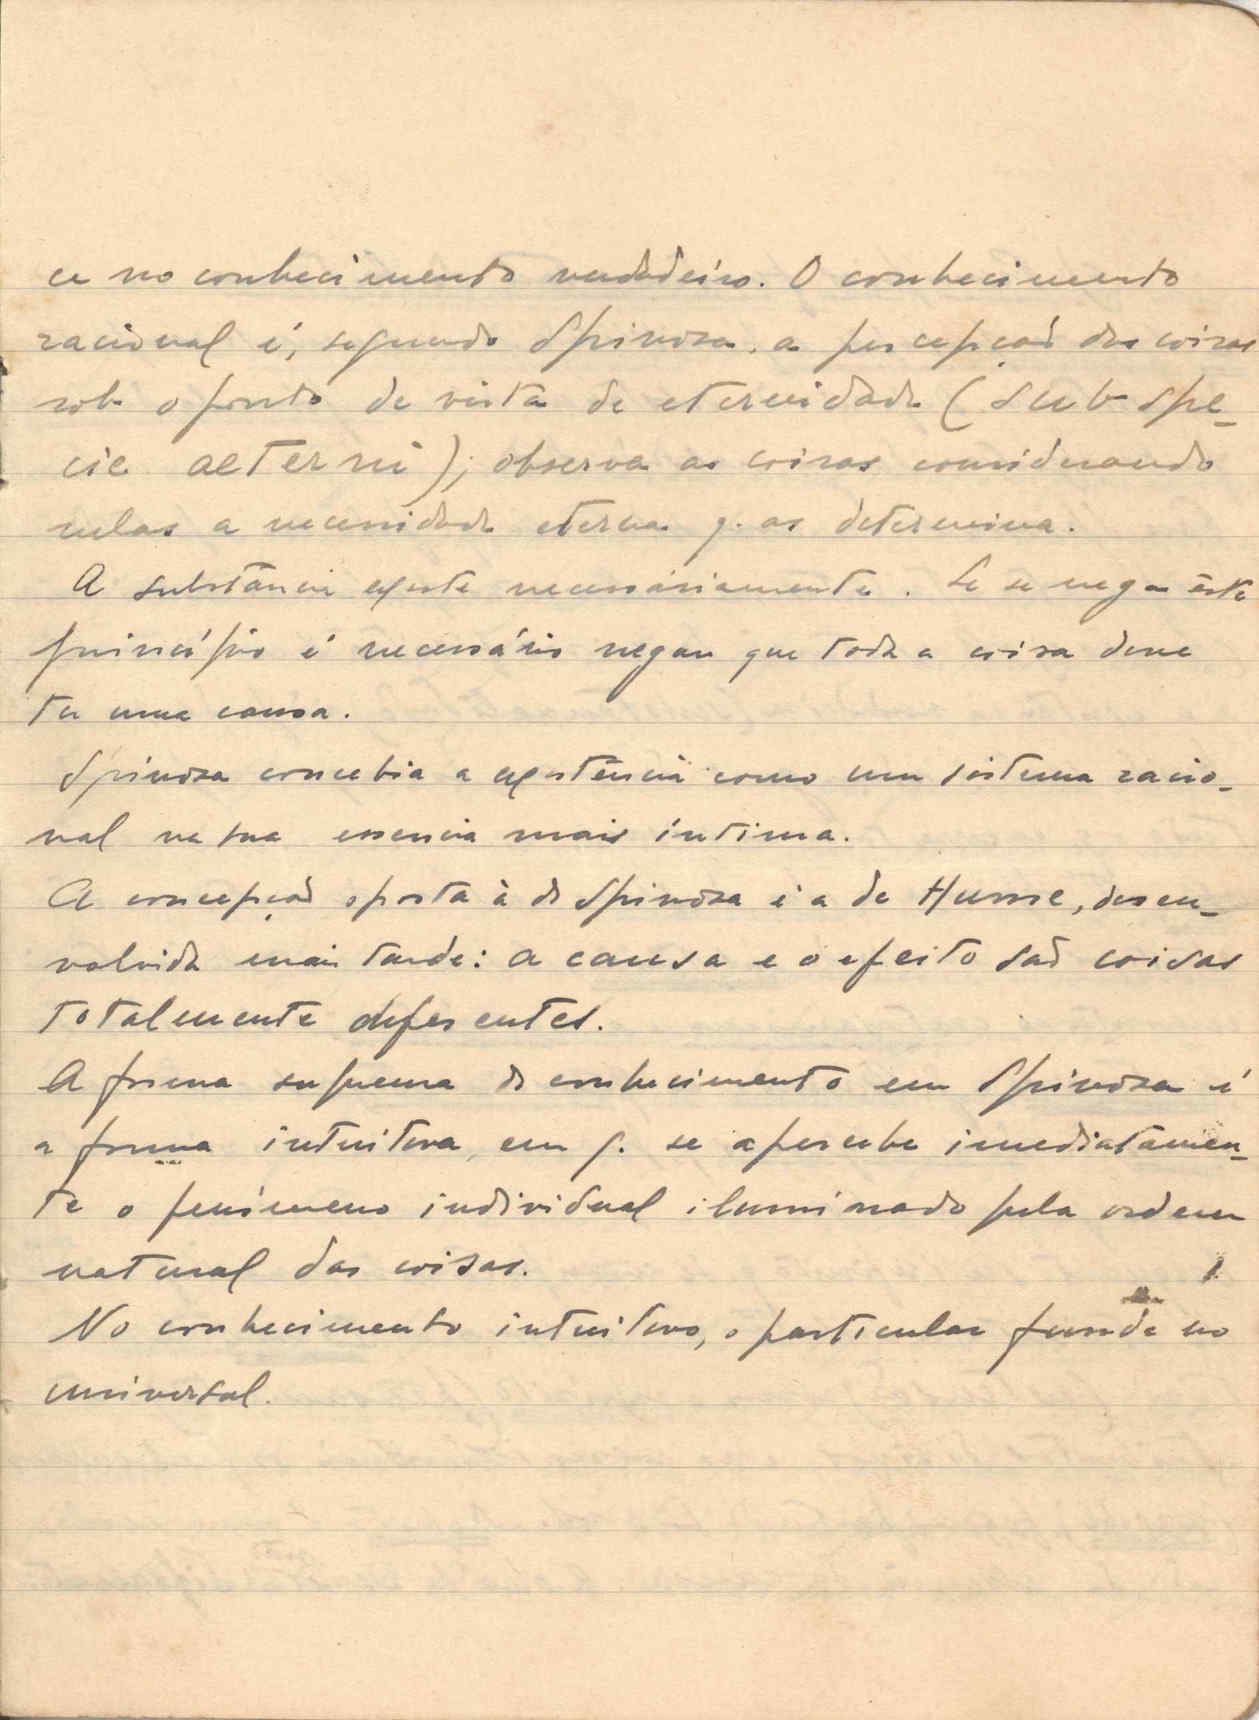 ce no conhecimento verdadeiro. O conhecimento
racional é, segundo Spinosa, a percepção das coisas
sob o ponto de vista de eternidade (sub spe-
cie aeterni); observa as coisas considerando
nelas a necessidade eterna q. as determina.
A substância existe necessáriamente. Se se nega êste
princípio é necessário negar que toda a coisa deve
ter uma causa.
Spinosa concebia a existência como um sistema racio-
nal na sua essencia mais íntima.
A concepção oposta à de Spinosa é a de Hume, desen-
volvida mais tarde: a causa e o efeito são coisas
totalmente diferentes.
A forma suprema de conhecimento em Spinosa é
a forma intuitiva, em q. se apercebe imediatamen-
te o fenómeno individual iluminado pela ordem
natural das coisas.
No conhecimento intuitivo, o particular funde no
universal.